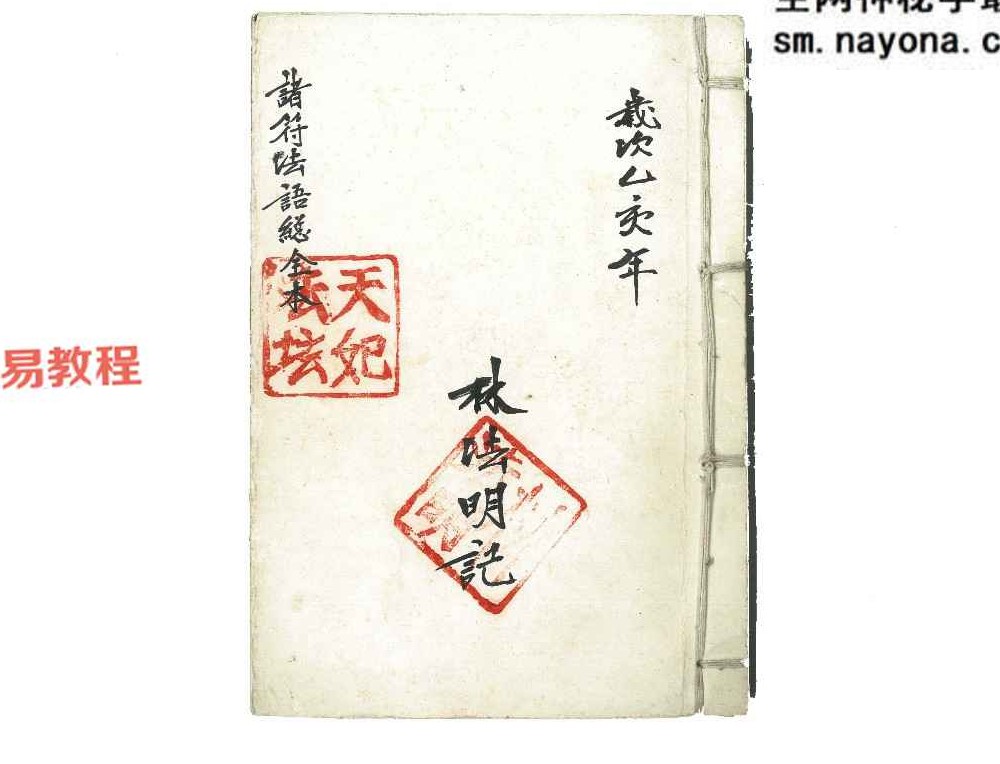 歲次乙亥年
林法明記
諸符法語總全本
天妃
法坛
易教程
sm.nayona.c